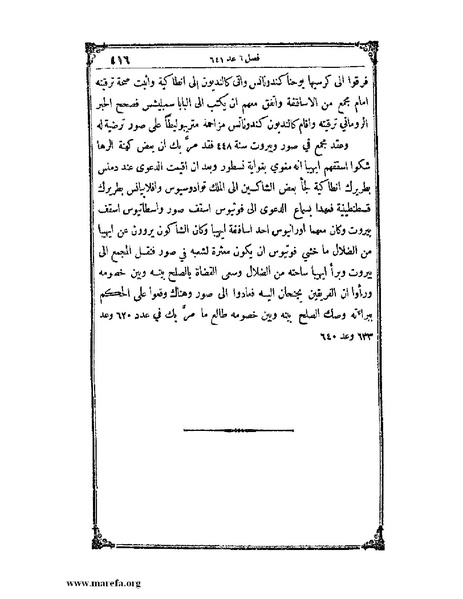 فصل ٦ عد ٦٤١
٤١٦
فرقوا الى كرسيها يوحنا كندوناتس واتى كالنديون الى انطاكية واثبت صحة ترقيته
امام مجمع من الاساقفة واتفق معهم ان يكتب الى البابا سمبليشس فصحح الحبر
الروماني ترقيته واقام كالنديون كندوناتس مزاحمه متروبوليطاً على صور ترضية له
وعقد مجمع في صور وبيروت سنة ٤٤٨ فقد مرَّ بك ان بعض كهنة الرها
شكوا اسقفهم ايهيبا انه مغوي بغواية نسطور وبعد ان اقيمت الدعوى عند دمنس
بطريرك انطاكية لجأ بعض الشاكين الى الملك تواودسيوس وافلابيانس بطريرك
قسطنطينية فعهدا بسماع الدعوى الى فوتيوس اسقف صور واسطاتيوس اسقف
بيروت وكان معهما اورانيوس احد اساقفة ايهيبا وكان الشاكون يروون عن ايهيبا
من الضلال ما خشي فوتيوس ان يكون معثرة لشعبه في صور فنقل المجمع الى
بيروت وبرأ ايهيبا ساحته من الضلال وسعى القضاة بالصلح بينه وبين خصومه
ورأوا ان الفريقين يجنحان اليه فعادوا الى صور وهناك وقعوا على الحكم
ببراءته وصك الصلح بينه وبين خصومه طالع ما مرَّ بك في عدد ٦٢٠ وعد
٦٣٣ وعد ٦٤٠
www.marefa.org